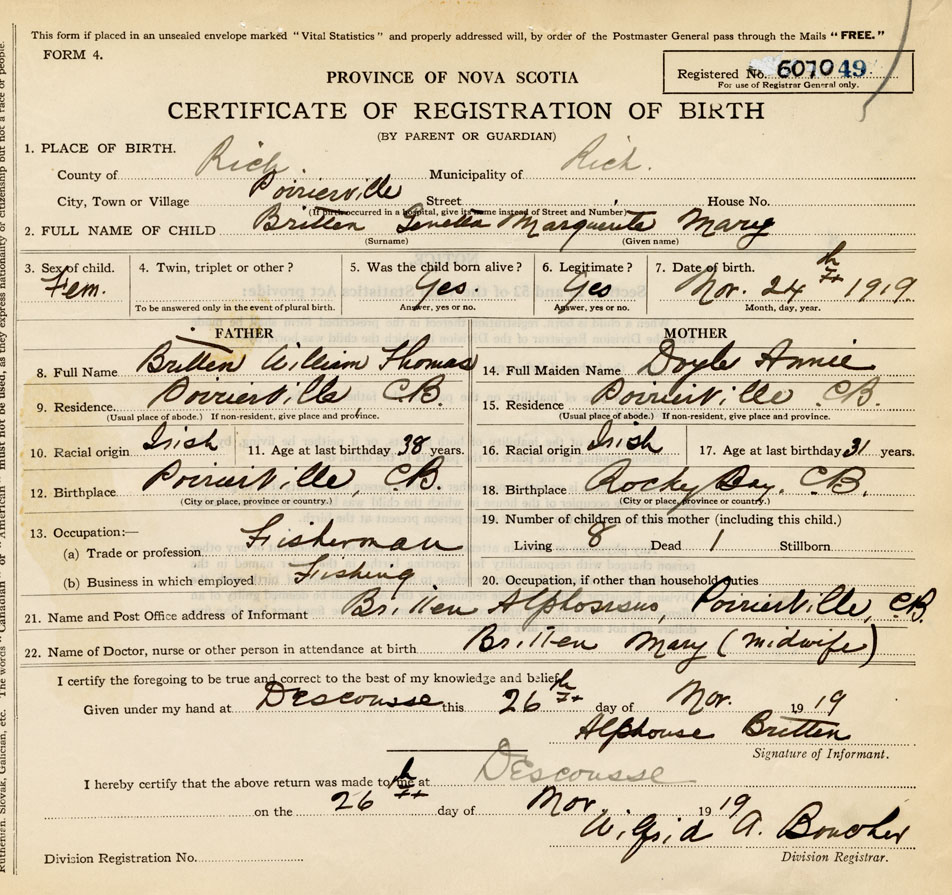 This form if placed in an unsealed envelope marked "Vital Statistics" and properly addressed will, by order of the Postmaster General pass through the Mails "FREE."
FORM 4.
Registered No. 607049
For use of Registrar General only.
PROVINCE OF NOVA SCOTIA
CERTIFICATE OF REGISTRATION OF BIRTH
(BY PARENT OR GUARDIAN)
1. PLACE OF BIRTH.
County of Rich Municipality of Rich.
City, Town or Village Poirierville Street House No.
(If birth occurred in a hospital, give its name instead of Street and Number)
2. FULL NAME OF CHILD Britten Genetta Marguerite Mary
(Surname) (Given name)
3. Sex of child. 4. Twin, triplet or other? 5. Was the child born alive? 6. Legitimate? 7. Date of birth.
Fem. Yes. Yes Nov. 24th 1919
To be answered only in the event of plural birth. Answer, yes or no. Answer, yes or no. Month, day, year.
FATHER MOTHER
8. Full Name Britten William Thomas 14. Full Maiden Name Doyle Annie
9. Residence. Poirierville CB. 15. Residence Poirierville CB.
(Usual place of abode.) If non-resident, give place and province. (Usual place of abode.) If non-resident, give place and province.
10. Racial origin Irish 11. Age at last birthday 38 years. 16. Racial origin Irish 17. Age at last birthday 31 years.
12. Birthplace Poirierville, CB. 18. Birthplace Rocky Bay. CB.
(City or place, province or country.) (City or place, province or country.)
13. Occupation:— 19. Number of children of this mother (including this child.)
(a) Trade or profession Fisherman Living 8 Dead 1 Stillborn
(b) Business in which employed Fishing 20. Occupation, if other than household duties
21. Name and Post Office address of Informant Britten Alphonsus, Poirierville, CB.
22. Name of Doctor, nurse or other person in attendance at birth Britten Mary (midwife)
I certify the foregoing to be true and correct to the best of my knowledge and belief.
Given under my hand at Descousse this 26th day of Nov. 1919
Alphonse Britten
Signature of Informant.
I hereby certify that the above return was made to me at Descousse
on the 26th day of Nov. 1919
Wilfrid A. Boucher
Division Registrar.
Division Registration No.